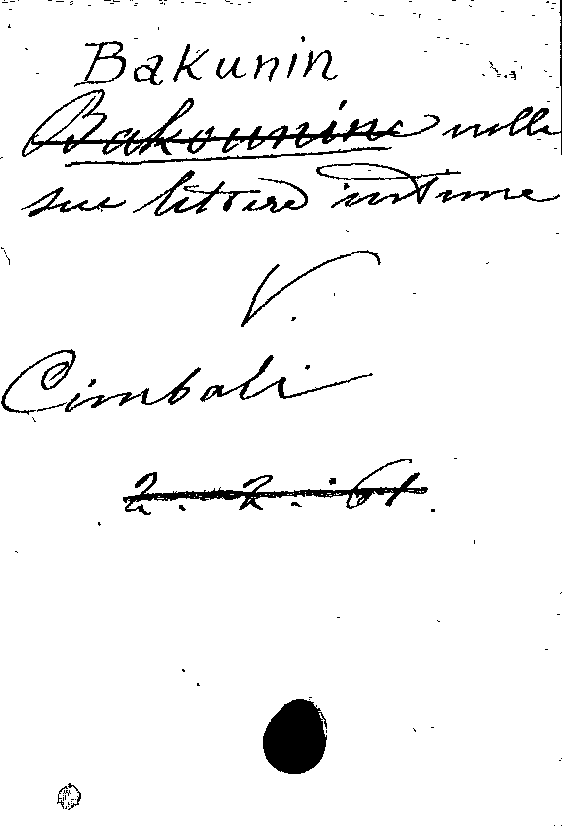 Bakunin
Bakounine nelle
sue lettere intime
V.
Cimbali
2. 2. 61.